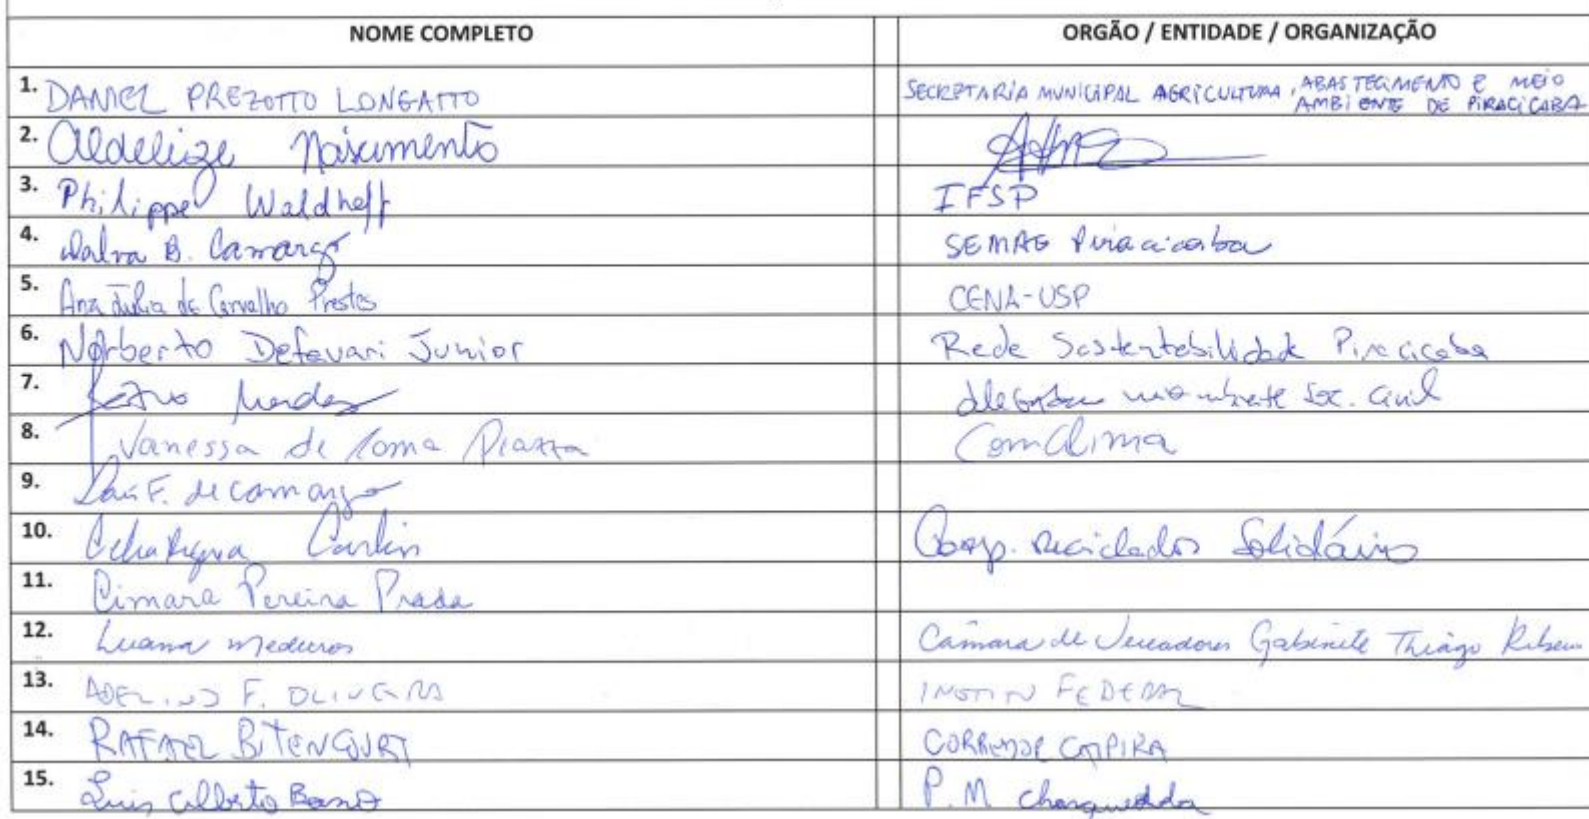 NOME COMPLETO ORGÃO / ENTIDADE / ORGANIZAÇÃO
1. DANIEL PREZOTTO LONGATTO SECRETARIA MUNICIPAL AGRICULTURA, ABASTECIMENTO E MEIO
AMBIENTE DE PIRACICABA
2. Aldelize Nascimento
3. Philippe Waldheff IFSP
4. Dalva B. Camargo SEMAE Piracicaba
5. Ana Julia de Carvalho Prestes CENA-USP
6. Norberto Defavari Junior Rede Sustentabilidade Piracicaba
7. Mendes Soc. Civil
8. Vanessa de Piazza ComClima
9. F. de Camargo
10. Carlin Coop. Reciclador Solidário
11. Cimara Pereira Prada
12. Luana Medeiros Câmara de Vereadores Gabinete Thiago Ribeiro
13. ADELINO F. OLIVEIRA FEDERAL
14. RAFAEL BITENCOURT CORREDOR CAIPIRA
15. Luis Alberto P.M Charqueada